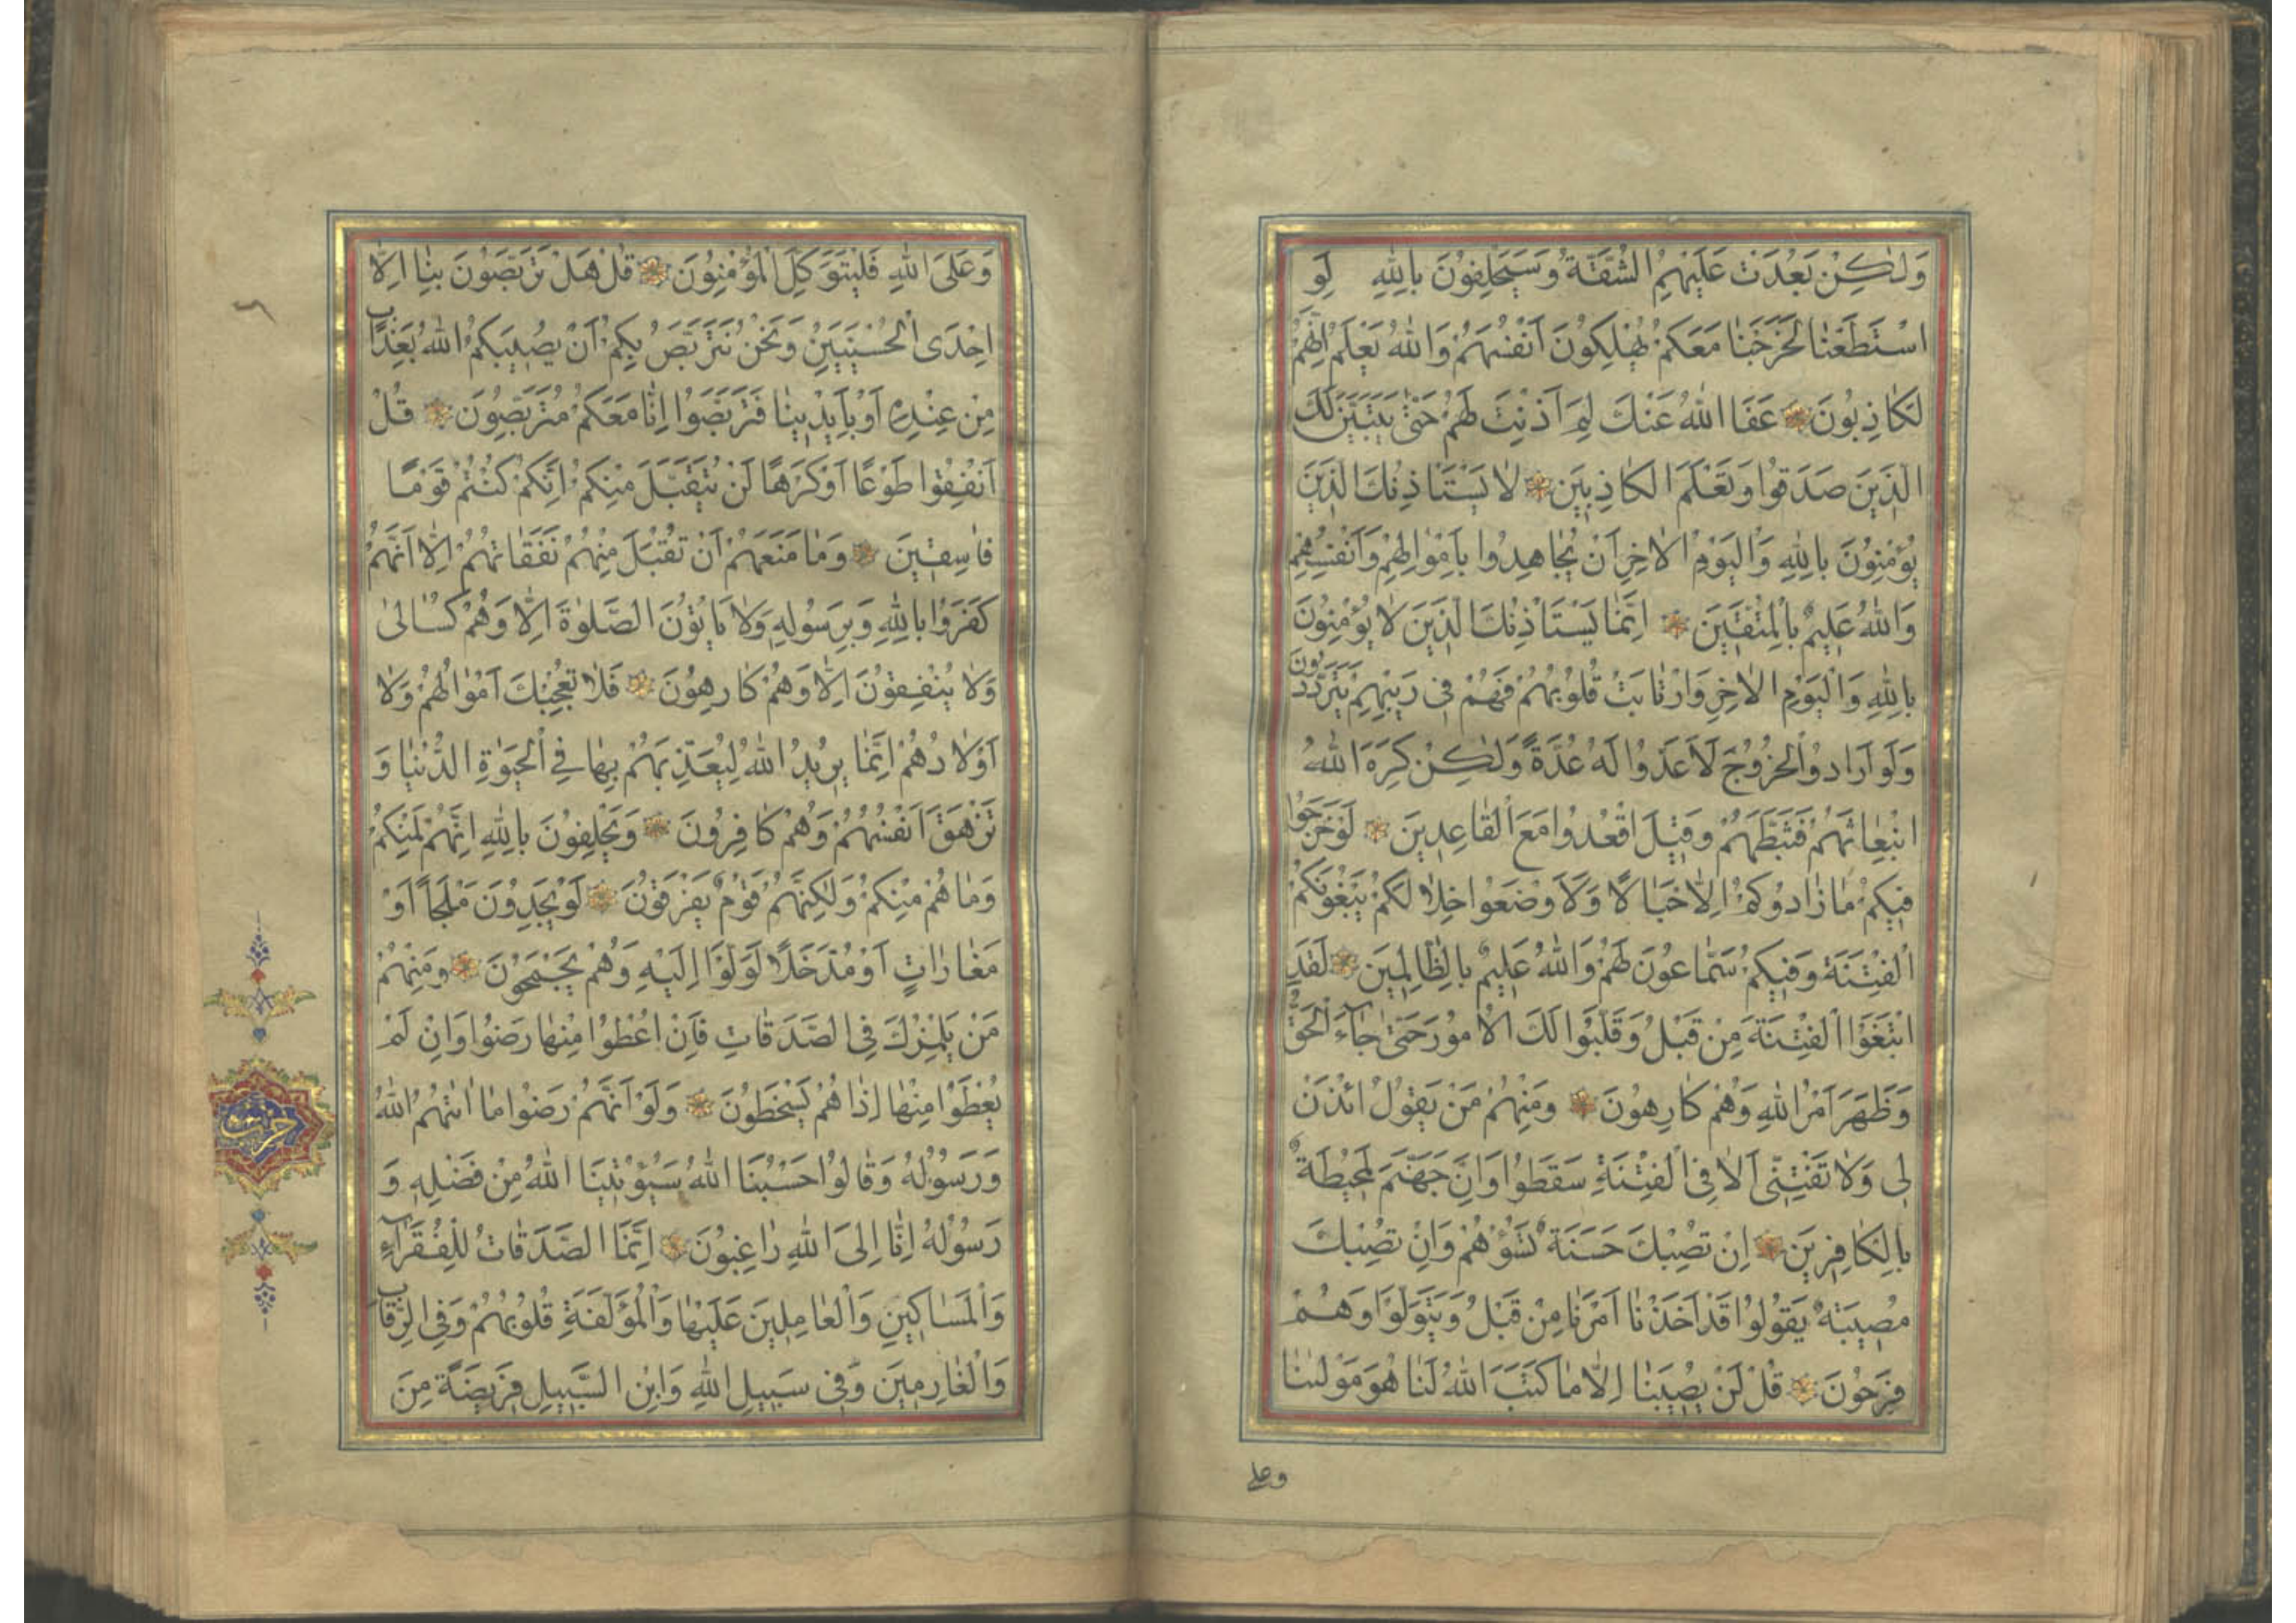 وَلٰكِنْ بَعُدَتْ عَلَيْهِمُ الشُّقَّةُ وَسَيَحْلِفُونَ بِاللّٰهِ لَوِ
اسْتَطَعْنَا لَخَرَجْنَا مَعَكُمْ يُهْلِكُونَ اَنْفُسَهُمْ وَاللّٰهُ يَعْلَمُ اِنَّهُمْ
لَكَاذِبُونَ عَفَا اللّٰهُ عَنْكَ لِمَ اَذِنْتَ لَهُمْ حَتّٰى يَتَبَيَّنَ لَكَ
الَّذِينَ صَدَقُوا وَتَعْلَمَ الْكَاذِبِينَ لَا يَسْتَاْذِنُكَ الَّذِينَ
يُؤْمِنُونَ بِاللّٰهِ وَالْيَوْمِ الْاٰخِرِ اَنْ يُجَاهِدُوا بِاَمْوَالِهِمْ وَاَنْفُسِهِمْ
وَاللّٰهُ عَلِيمٌ بِالْمُتَّقِينَ اِنَّمَا يَسْتَاْذِنُكَ الَّذِينَ لَا يُؤْمِنُونَ
بِاللّٰهِ وَالْيَوْمِ الْاٰخِرِ وَارْتَابَتْ قُلُوبُهُمْ فَهُمْ فِى رَيْبِهِمْ يَتَرَدَّدُونَ
وَلَوْ اَرَادُوا الْخُرُوجَ لَاَعَدُّوا لَهُ عُدَّةً وَلٰكِنْ كَرِهَ اللّٰهُ
انْبِعَاثَهُمْ فَثَبَّطَهُمْ وَقِيلَ اقْعُدُوا مَعَ الْقَاعِدِينَ لَوْ خَرَجُوا
فِيكُمْ مَا زَادُوكُمْ اِلَّا خَبَالًا وَلَاَوْضَعُوا خِلَالَكُمْ يَبْغُونَكُمُ
الْفِتْنَةَ وَفِيكُمْ سَمَّاعُونَ لَهُمْ وَاللّٰهُ عَلِيمٌ بِالظَّالِمِينَ لَقَدِ
ابْتَغَوُا الْفِتْنَةَ مِنْ قَبْلُ وَقَلَّبُوا لَكَ الْاُمُورَ حَتّٰى جَاءَ الْحَقُّ
وَظَهَرَ اَمْرُ اللّٰهِ وَهُمْ كَارِهُونَ وَمِنْهُمْ مَنْ يَقُولُ ائْذَنْ
لِى وَلَا تَفْتِنِّى اَلَا فِى الْفِتْنَةِ سَقَطُوا وَاِنَّ جَهَنَّمَ لَمُحِيطَةٌ
بِالْكَافِرِينَ اِنْ تُصِبْكَ حَسَنَةٌ تَسُؤْهُمْ وَاِنْ تُصِبْكَ
مُصِيبَةٌ يَقُولُوا قَدْ اَخَذْنَا اَمْرَنَا مِنْ قَبْلُ وَيَتَوَلَّوْا وَهُمْ
فَرِحُونَ قُلْ لَنْ يُصِيبَنَا اِلَّا مَا كَتَبَ اللّٰهُ لَنَا هُوَ مَوْلٰينَا
وعلى
وَعَلَى اللّٰهِ فَلْيَتَوَكَّلِ الْمُؤْمِنُونَ قُلْ هَلْ تَرَبَّصُونَ بِنَا اِلَّا
اِحْدَى الْحُسْنَيَيْنِ وَنَحْنُ نَتَرَبَّصُ بِكُمْ اَنْ يُصِيبَكُمُ اللّٰهُ بِعَذَابٍ
مِنْ عِنْدِهِ اَوْ بِاَيْدِينَا فَتَرَبَّصُوا اِنَّا مَعَكُمْ مُتَرَبِّصُونَ قُلْ
اَنْفِقُوا طَوْعًا اَوْ كَرْهًا لَنْ يُتَقَبَّلَ مِنْكُمْ اِنَّكُمْ كُنْتُمْ قَوْمًا
فَاسِقِينَ وَمَا مَنَعَهُمْ اَنْ تُقْبَلَ مِنْهُمْ نَفَقَاتُهُمْ اِلَّا اَنَّهُمْ
كَفَرُوا بِاللّٰهِ وَبِرَسُولِهِ وَلَا يَاْتُونَ الصَّلٰوةَ اِلَّا وَهُمْ كُسَالٰى
وَلَا يُنْفِقُونَ اِلَّا وَهُمْ كَارِهُونَ فَلَا تُعْجِبْكَ اَمْوَالُهُمْ وَلَا
اَوْلَادُهُمْ اِنَّمَا يُرِيدُ اللّٰهُ لِيُعَذِّبَهُمْ بِهَا فِى الْحَيٰوةِ الدُّنْيَا وَ
تَزْهَقَ اَنْفُسُهُمْ وَهُمْ كَافِرُونَ وَيَحْلِفُونَ بِاللّٰهِ اِنَّهُمْ لَمِنْكُمْ
وَمَا هُمْ مِنْكُمْ وَلٰكِنَّهُمْ قَوْمٌ يَفْرَقُونَ لَوْ يَجِدُونَ مَلْجَاً اَوْ
مَغَارَاتٍ اَوْ مُدَّخَلًا لَوَلَّوْا اِلَيْهِ وَهُمْ يَجْمَحُونَ وَمِنْهُمْ
مَنْ يَلْمِزُكَ فِى الصَّدَقَاتِ فَاِنْ اُعْطُوا مِنْهَا رَضُوا وَاِنْ لَمْ
يُعْطَوْا مِنْهَا اِذَا هُمْ يَسْخَطُونَ وَلَوْ اَنَّهُمْ رَضُوا مَا اٰتٰيهُمُ اللّٰهُ
وَرَسُولُهُ وَقَالُوا حَسْبُنَا اللّٰهُ سَيُؤْتِينَا اللّٰهُ مِنْ فَضْلِهِ وَ
رَسُولُهُ اِنَّا اِلَى اللّٰهِ رَاغِبُونَ اِنَّمَا الصَّدَقَاتُ لِلْفُقَرَاءِ
وَالْمَسَاكِينِ وَالْعَامِلِينَ عَلَيْهَا وَالْمُؤَلَّفَةِ قُلُوبُهُمْ وَفِى الرِّقَابِ
وَالْغَارِمِينَ وَفِى سَبِيلِ اللّٰهِ وَابْنِ السَّبِيلِ فَرِيضَةً مِنَ
حزب